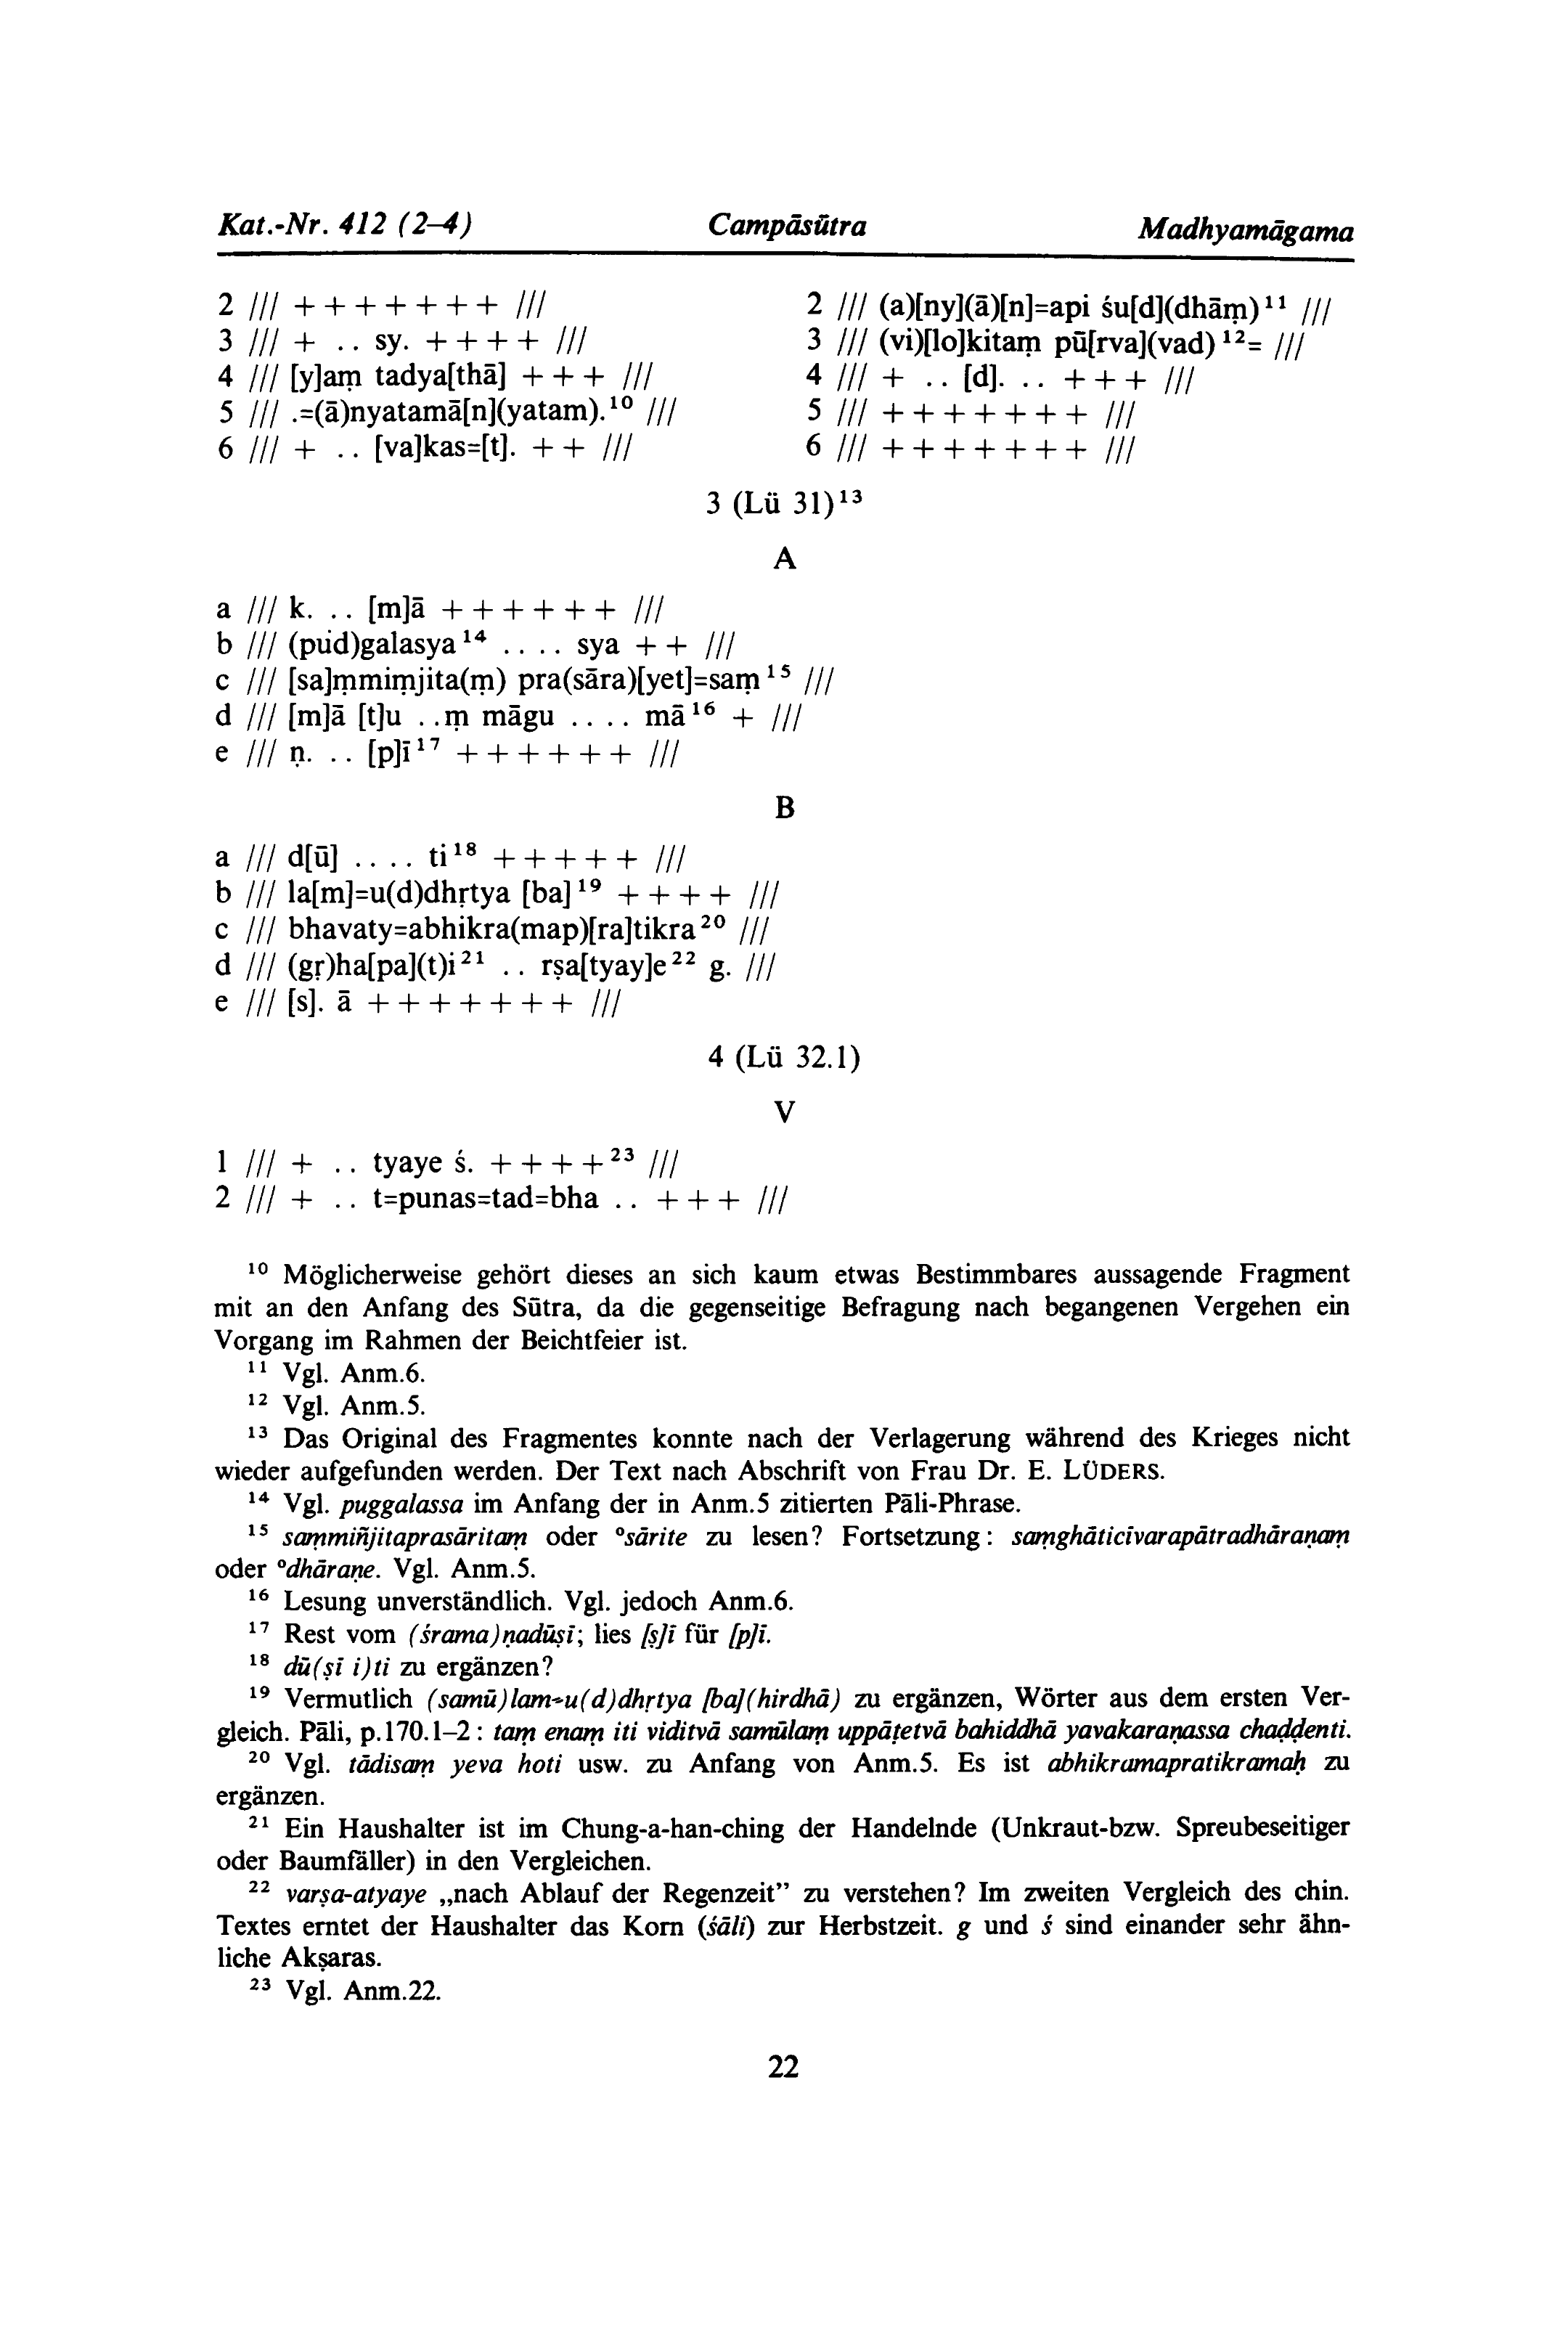 Kat.-Nr. 412 (2–4) Campāsūtra Madhyamāgama
2 /// + + + + + + + ///
3 /// + .. sy. + + + + ///
4 /// [y]aṃ tadya[thā] + + + ///
5 /// .=(ā)nyatamā[n](yatam).¹⁰ ///
6 /// + .. [va]kas=[t]. + + ///
2 /// (a)[ny](ā)[n]=api śu[d](dhāṃ)¹¹ ///
3 /// (vi)[lo]kitaṃ pū[rva](vad)¹²= ///
4 /// + .. [d]. .. + + + ///
5 /// + + + + + + + ///
6 /// + + + + + + + ///
3 (Lü 31)¹³
A
a /// k. .. [m]ā + + + + + + ///
b /// (pud)galasya¹⁴ .... sya + + ///
c /// [sa]ṃmiṃjita(ṃ) pra(sāra)[yet]=saṃ¹⁵ ///
d /// [m]ā [t]u ..ṃ māgu .... mā¹⁶ + ///
e /// ṇ. .. [p]ī¹⁷ + + + + + + ///
B
a /// d[ū] .... ti¹⁸ + + + + + ///
b /// la[m]=u(d)dhṛtya [ba]¹⁹ + + + + ///
c /// bhavaty=abhikra(map)[ra]tikra²⁰ ///
d /// (gṛ)ha[pa](t)i²¹ .. rṣa[tyay]e²² g. ///
e /// [s]. ā + + + + + + + ///
4 (Lü 32.1)
V
1 /// + .. tyaye ś. + + + +²³ ///
2 /// + .. t=punas=tad=bha .. + + + ///
¹⁰ Möglicherweise gehört dieses an sich kaum etwas Bestimmbares aussagende Fragment
mit an den Anfang des Sūtra, da die gegenseitige Befragung nach begangenen Vergehen ein
Vorgang im Rahmen der Beichtfeier ist.
¹¹ Vgl. Anm.6.
¹² Vgl. Anm.5.
¹³ Das Original des Fragmentes konnte nach der Verlagerung während des Krieges nicht
wieder aufgefunden werden. Der Text nach Abschrift von Frau Dr. E. LÜDERS.
¹⁴ Vgl. puggalassa im Anfang der in Anm.5 zitierten Pāli-Phrase.
¹⁵ saṃmiñjitaprasāritaṃ oder °sārite zu lesen? Fortsetzung: saṃghāticivarapātradhāraṇaṃ
oder °dhāraṇe. Vgl. Anm.5.
¹⁶ Lesung unverständlich. Vgl. jedoch Anm.6.
¹⁷ Rest vom (śrama)ṇadūṣi; lies [ṣ]ī für [p]ī.
¹⁸ dū(ṣī i)ti zu ergänzen?
¹⁹ Vermutlich (samū)lam=u(d)dhṛtya [ba](hirdhā) zu ergänzen, Wörter aus dem ersten Ver-
gleich. Pāli, p.170.1–2: taṃ enaṃ iti viditvā samūlaṃ uppāṭetvā bahiddhā yavakaraṇassa chaḍḍenti.
²⁰ Vgl. tādisaṃ yeva hoti usw. zu Anfang von Anm.5. Es ist abhikramapratikramaḥ zu
ergänzen.
²¹ Ein Haushalter ist im Chung-a-han-ching der Handelnde (Unkraut-bzw. Spreubeseitiger
oder Baumfäller) in den Vergleichen.
²² varṣa-atyaye „nach Ablauf der Regenzeit” zu verstehen? Im zweiten Vergleich des chin.
Textes erntet der Haushalter das Korn (śāli) zur Herbstzeit. g und ś sind einander sehr ähn-
liche Akṣaras.
²³ Vgl. Anm.22.
22